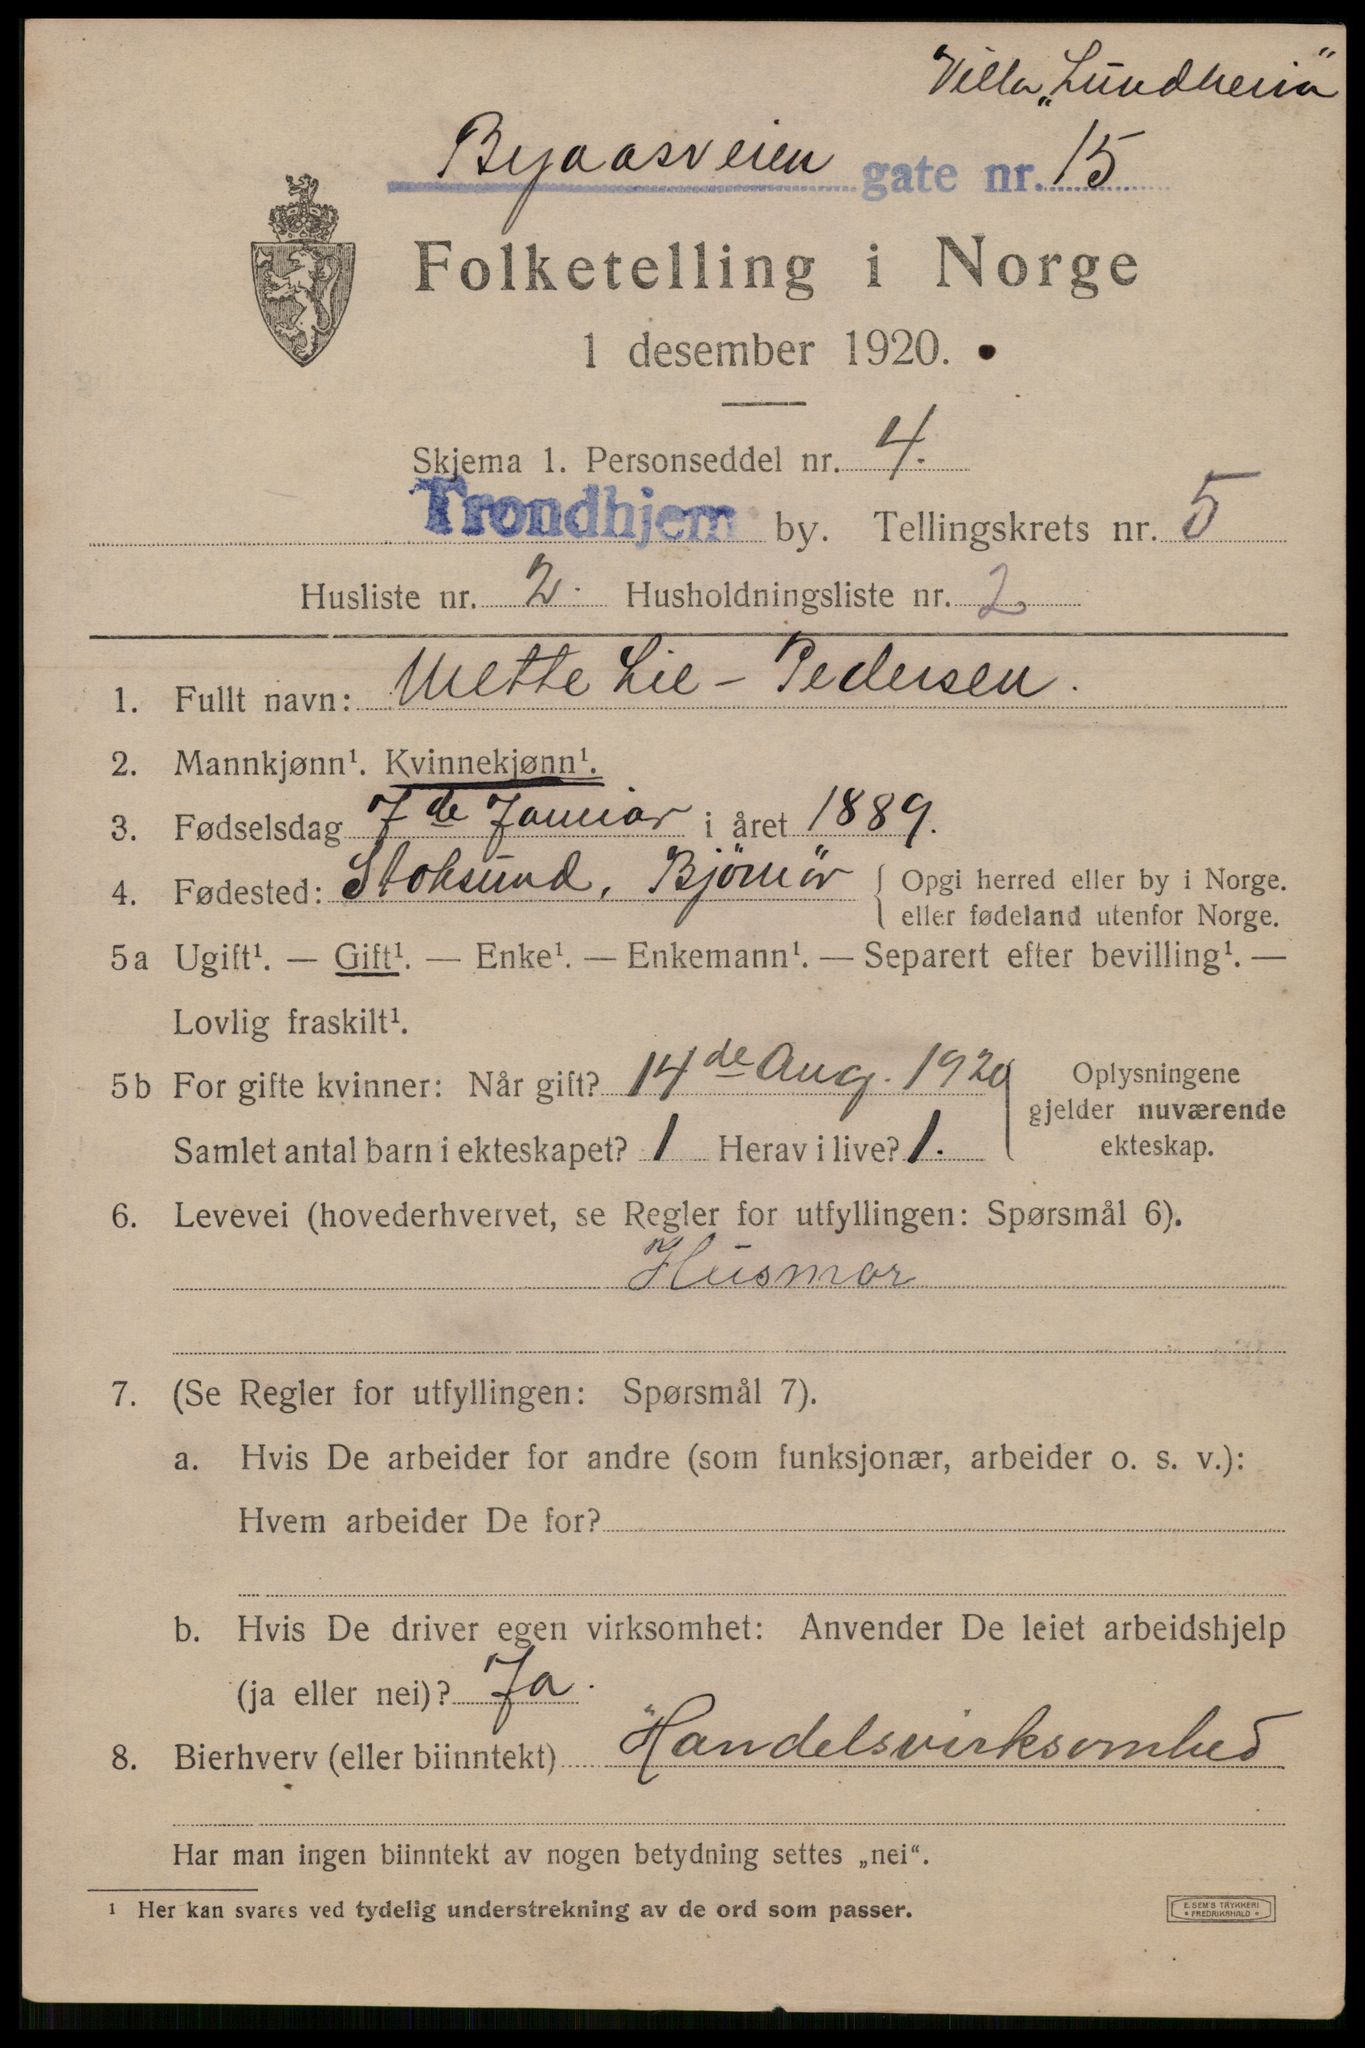 Villa „Lundheim"
Byaasveien gate nr. 15
Folketelling i Norge
1 desember 1920.
Skjema 1. Personseddel nr. 4.
Trondhjem by. Tellingskrets nr. 5
Husliste nr. 2. Husholdningsliste nr. 2
1. Fullt navn: Mette Lie - Pedersen.
2. Mannkjønn¹. Kvinnekjønn¹.
3. Fødselsdag 7de Januar i året 1889.
4. Fødested: Stoksund, Bjørnør { Opgi herred eller by i Norge.
eller fødeland utenfor Norge.
5a Ugift¹. — Gift¹. — Enke¹. — Enkemann¹. — Separert efter bevilling¹. —
Lovlig fraskilt¹.
5b For gifte kvinner: Når gift? 14de Aug. 1920 Oplysningene
gjelder nuværende
Samlet antal barn i ekteskapet? 1 Herav i live? 1. ekteskap.
6. Levevei (hovederhvervet, se Regler for utfyllingen: Spørsmål 6).
Husmor
7. (Se Regler for utfyllingen: Spørsmål 7).
a. Hvis De arbeider for andre (som funksjonær, arbeider o. s. v.):
Hvem arbeider De for?
b. Hvis De driver egen virksomhet: Anvender De leiet arbeidshjelp
(ja eller nei)? Ja.
8. Bierhverv (eller biinntekt) Handelsvirksomhed
Har man ingen biinntekt av nogen betydning settes „nei".
¹ Her kan svares ved tydelig understrekning av de ord som passer.
E. SEM'S TRYKKERI
FREDRIKSHALD